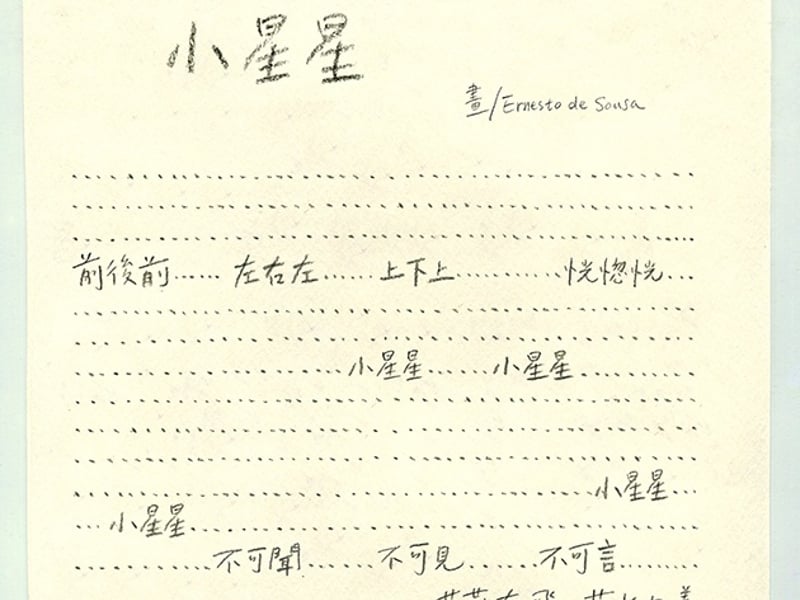 小星星
畫/Ernesto de Sousa
前後前......左右左......上下上............恍惚恍...
小星星......小星星............
小星星...
...小星星
............不可聞......不可見......不可言.........